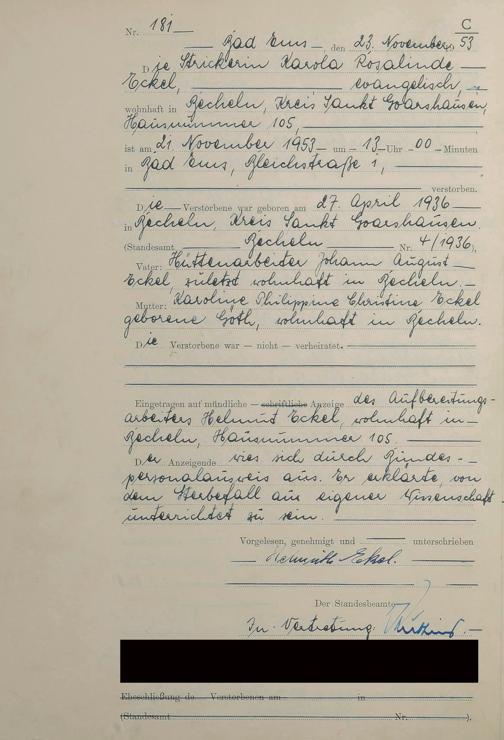 C
Nr. 181
Bad Ems, den 23. November 1953
Die Strickerin Karola Rosalinde
Eckel, evangelisch,
wohnhaft in Becheln, Kreis Sankt Goarshausen,
Hausnummer 105,
ist am 21. November 1953 um 13 Uhr 00 Minuten
in Bad Ems, Bleichstraße 1,
verstorben.
Die Verstorbene war geboren am 27. April 1936
in Becheln, Kreis Sankt Goarshausen.
(Standesamt Becheln Nr. 4/1936).
Vater: Hüttenarbeiter Johann August
Eckel, zuletzt wohnhaft in Becheln.
Mutter: Karoline Philippine Christine Eckel
geborene Göth, wohnhaft in Becheln.
Die Verstorbene war — nicht — verheiratet.
Eingetragen auf mündliche — schriftliche Anzeige des Aufbereitungs-
arbeiters Helmut Eckel, wohnhaft in
Becheln, Hausnummer 105.
Der Anzeigende wies sich durch Bundes-
personalausweis aus. Er erklärte, von
dem Sterbefall aus eigener Wissenschaft
unterrichtet zu sein.
Vorgelesen, genehmigt und unterschrieben
Helmuth Eckel.
Der Standesbeamte
In Vertretung:
Eheschließung de Verstorbenen am in
(Standesamt Nr. ).